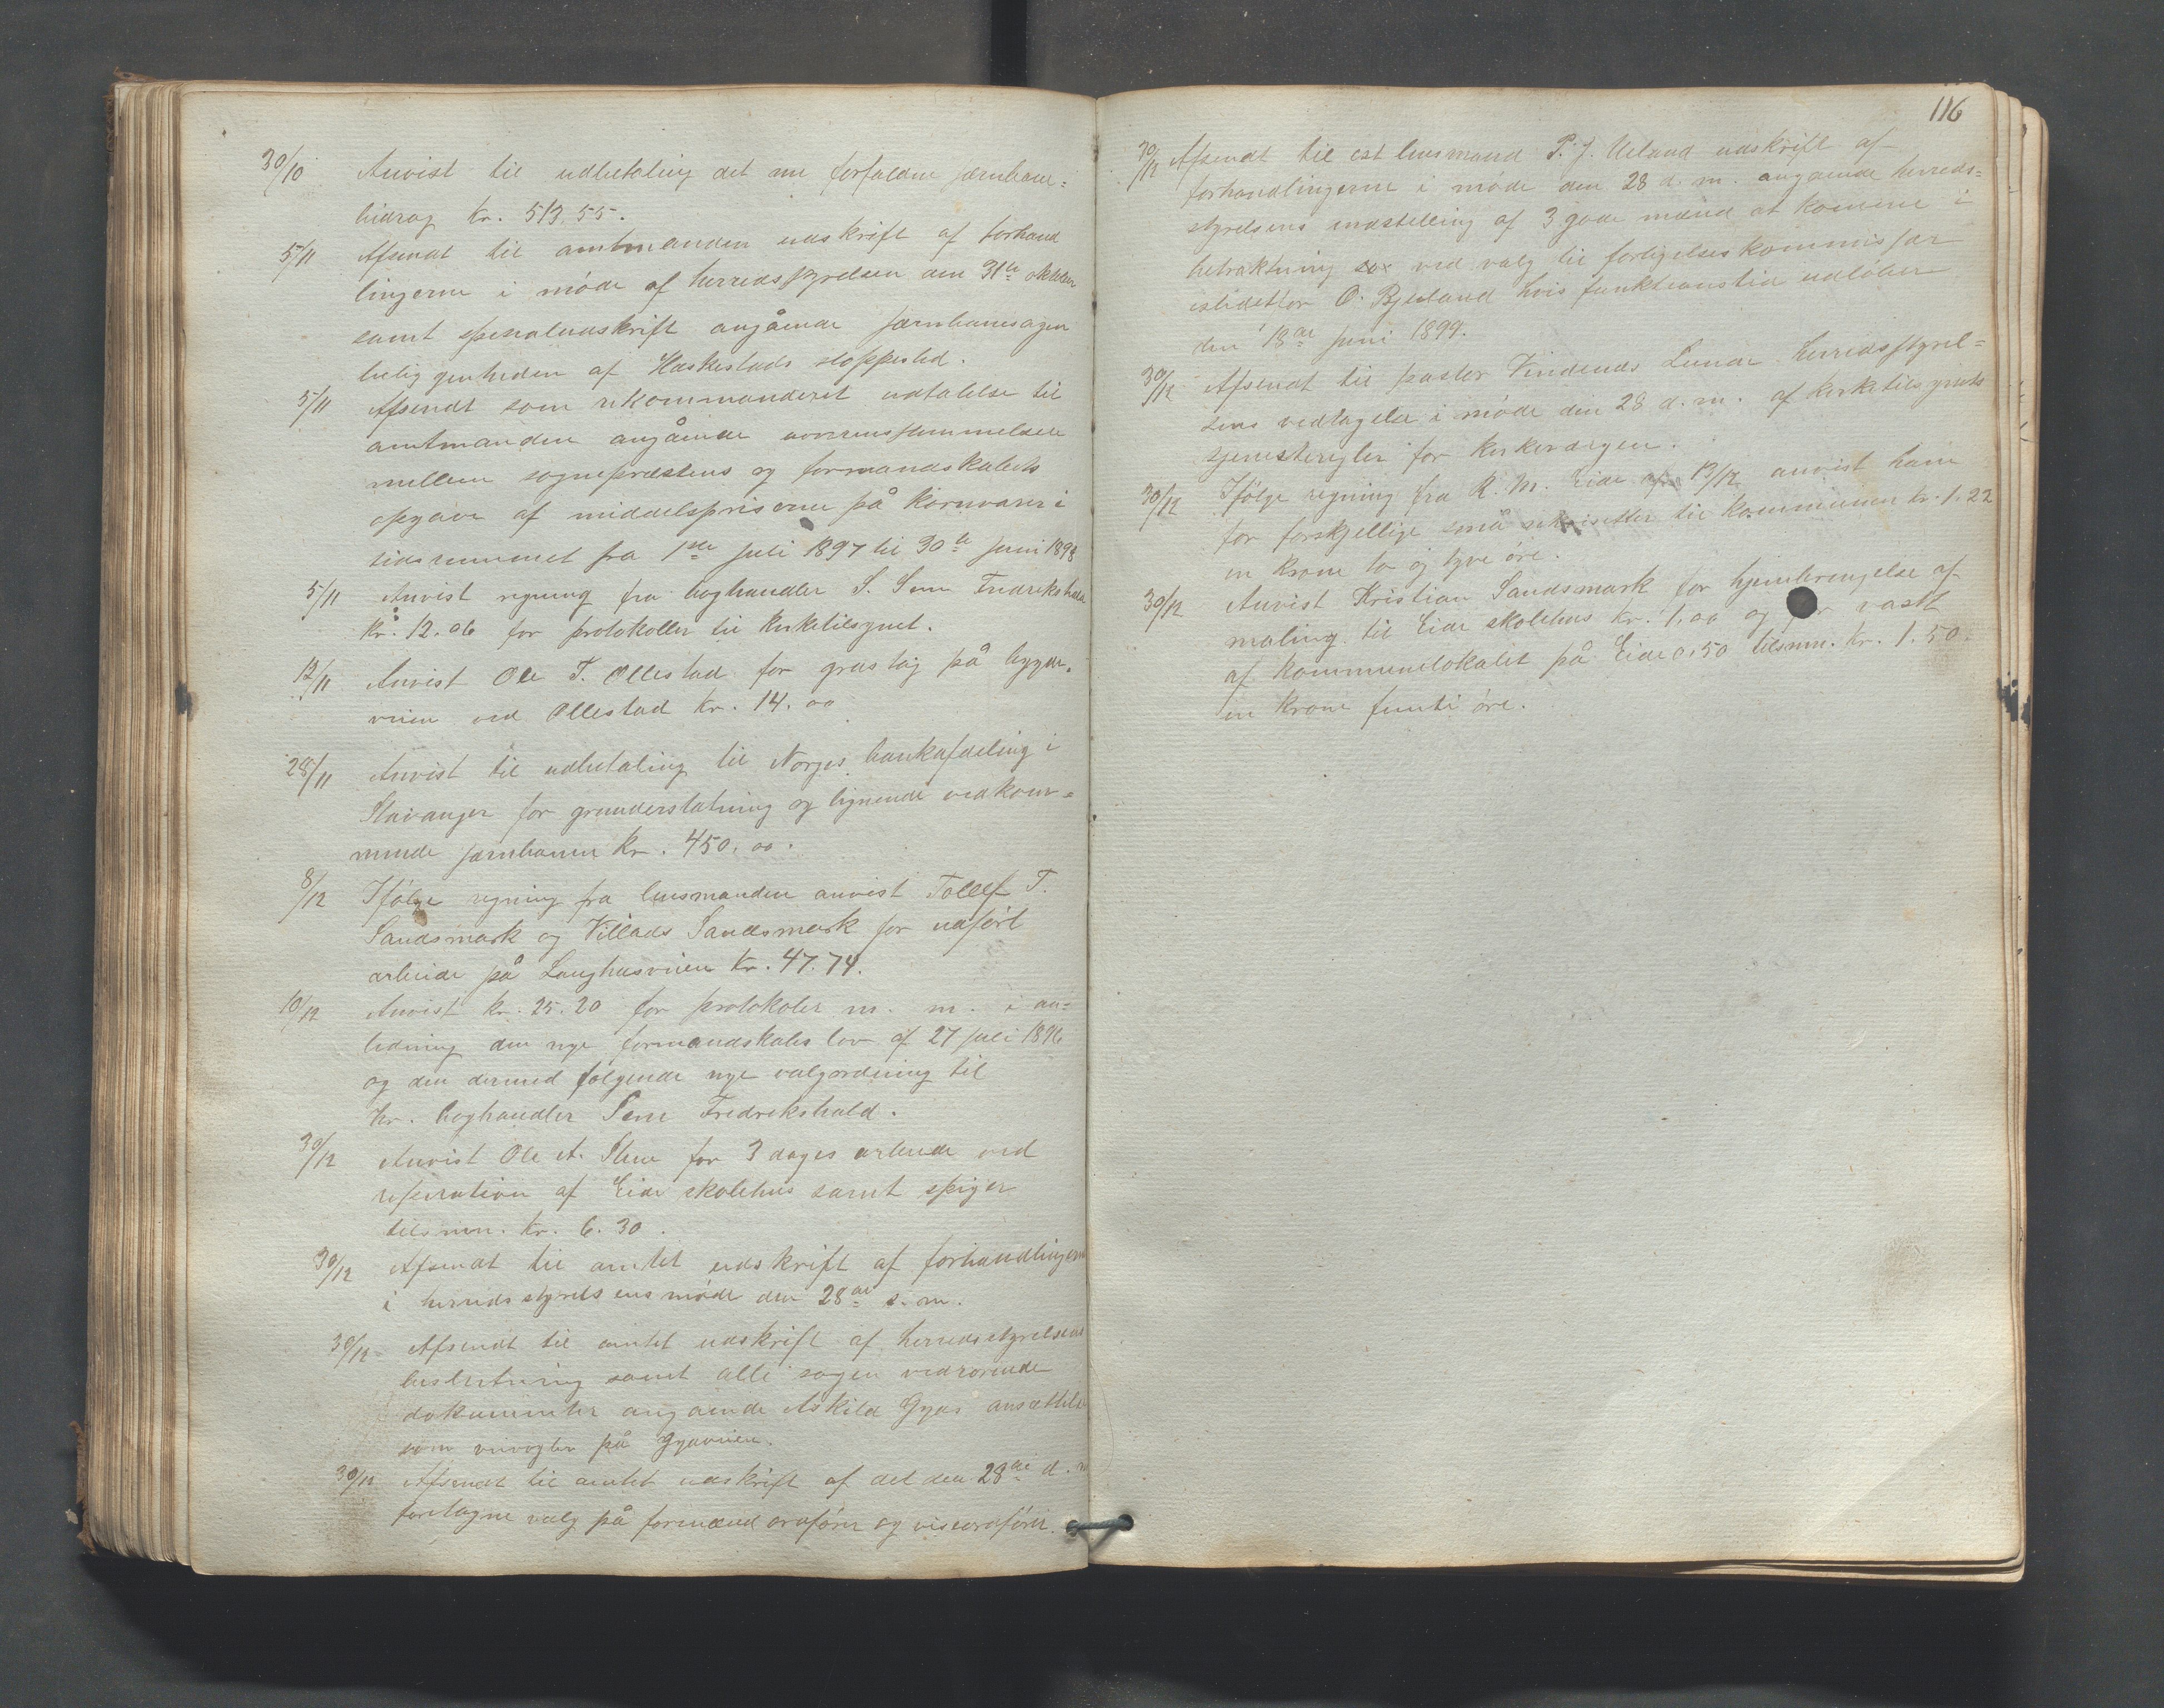 30/10 Anvist til udbetaling det nu forfaldne jærnbane=
bidrag kr. 513,55.
5/11 Afsendt til amtmanden udskrift af forhand
lingerne i møde af herredsstyrelsen den 31te oktober
samt spesialudskrift angående jærnbanesagen
beliggenheden af Heskestads stoppested.
5/11 Afsendt som rekommanderet udtalelse til
amtmanden angående uoverensstemmelsen
mellem sognepræstens og formandskabets
opgave af middelspriserne på kornvarer i
tidsrummet fra 1ste juli 1897 til 30te juni 1898
5/11 Anvist regning fra boghandler S. Sem Fredrikshald
kr. 12.06 for protokoller til kirketilsynet.
12/11 Anvist Ole T. Ollestad for grustag på bygde=
veien ved Ollestad kr. 14.00
28/11 Anvist til udbetaling til Norges bankafdeling i
Stavanger for grunderstatning og lignende vedkom=
mende jærnbanen kr. 450.00.
8/12 Ifølge regning fra lensmanden anvist Tollef T.
Sandsmark og Villads Sandsmark for udført
arbeide på Langhusveien kr. 47.74.
10/12 Anvist kr. 25.20 for protokoler m. m. i an=
ledning den nye formandskabs lov af 27 juli 1896
og den dermed følgende nye valgordning til
hr. boghandler Sem Fredrikshald.
30/12 Anvist Ole A. for 3 dages arbeide ved
reperation af Eide skolehus samt spiger
tilsmn. kr. 6.30.
30/12 Afsendt til amtet udskrift af forhandlingerne
i herredsstyrelsens møde den 28de d. m.
30/12 Afsendt til amtet udskrift af herredsstyrelsens
beslutning samt alle sagen vedrørende
dokumenter angående Askild Gyas ansættelse
som veivogter på Gyaveien.
30/12 Afsendt til amtet udskrift af det den 28de d. m
foretagne valg på formænd ordfører og viseordfører.
116
30/12 Afsendt til cst lensmand P. J. Ueland udskrift af
forhandlingerne i møde den 28 d. m. angående herreds=
styrelsens indstilling af 3 gode mænd at komme i
betraktning ved valg til forligelseskommissær
istedetfor O. Bjuland hvis funktionstid udløber
den 18de juni 1899.
30/12 Afsendt til pastor Vindenæs Lunde herredsstyrel=
sens vedtagelse i møde den 28 d. m. af kirketilsynets
tjenesteregler for kirkeværgen.
30/12 Ifølge regning fra R. M. Eide af 13/12 anvist ham
for forskjellige små rekvisetter til kommunen kr. 1.22
en krone to og tyve øre.
30/12 Anvist Kristian Sandsmark for hjembringelse af
maling til Eide skolehus kr. 1.00 og for vask
af kommunelokalet på Eide 0.50 tilsmn. kr. 1.50.
en krone femti øre.